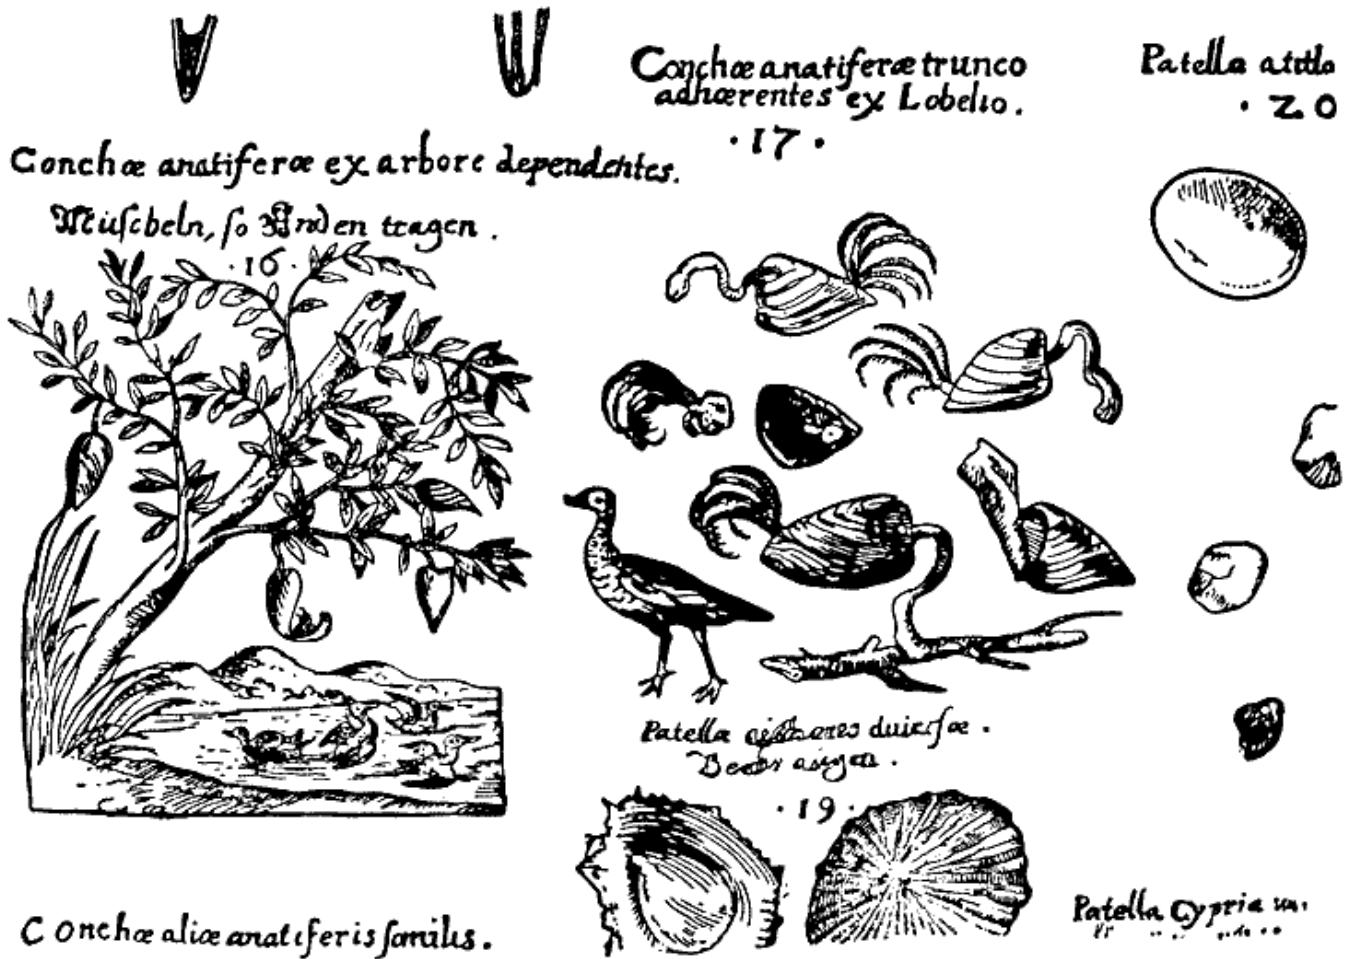 Conchæ anatiferæ trunco
adhærentes ex Lobelio.
·17·
Patella
·20
Conchæ anatiferæ ex arbore dependentes.
so Enden tragen.
·16·
Patella
·19·
Conchæ aliæ anatiferis similis.
Patella Cypria